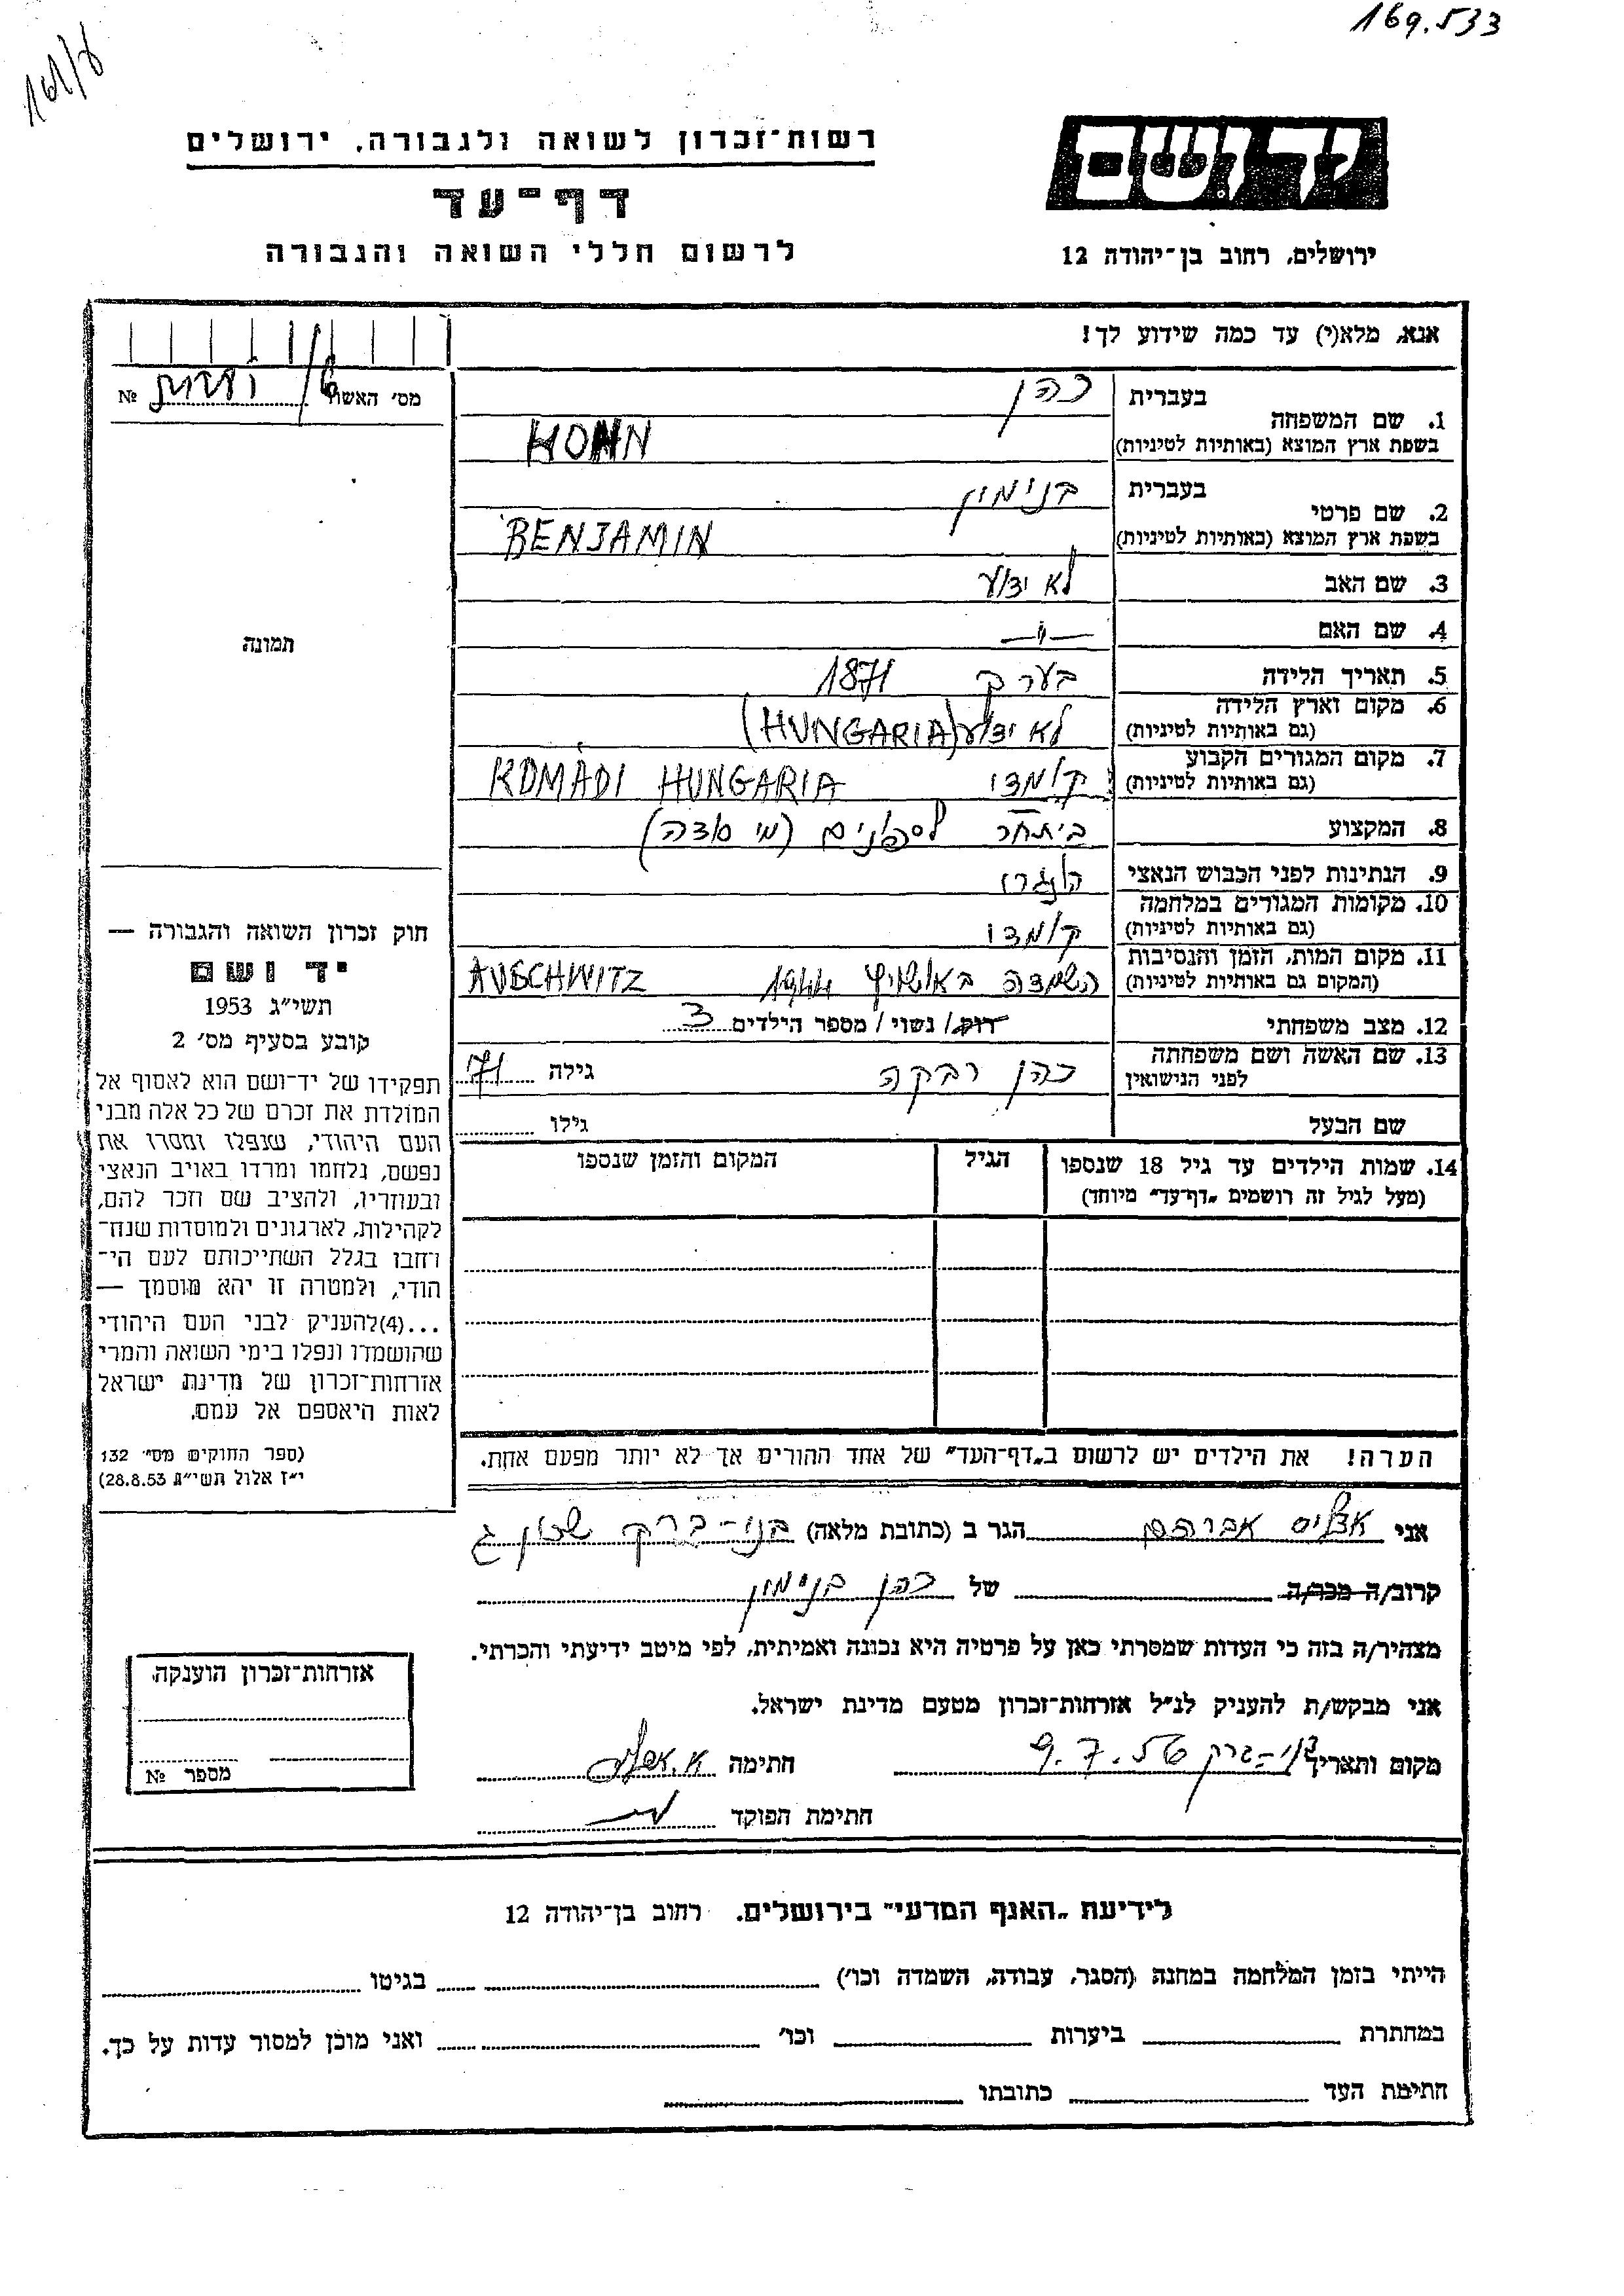 169.533
יד ושם
ירושלים, רחוב בן־יהודה 12
רשות־זכרון לשואה ולגבורה, ירושלים
דף־עד
לרשום חללי השואה והגבורה
אנא, מלא(י) עד כמה שידוע לך!
מס׳ האשה №
בעברית כהן
1. שם המשפחה
בשפת ארץ המוצא (באותיות לטיניות) HOHN
בעברית בנימין
2. שם פרטי
בשפת ארץ המוצא (באותיות לטיניות) BENJAMIN
3. שם האב לא ידוע
4. שם האם —"—
5. תאריך הלידה בערך 1871
6. מקום וארץ הלידה
(גם באותיות לטיניות) לא ידוע (HUNGARIA)
7. מקום המגורים הקבוע
(גם באותיות לטיניות) קומדי KOMÁDI HUNGARIA
8. המקצוע (מי סודה)
9. הנתינות לפני הכבוש הנאצי הונגרי
10. מקומות המגורים במלחמה
(גם באותיות לטיניות) קומדי
11. מקום המות, הזמן והנסיבות
(המקום גם באותיות לטיניות) השמדה באושויץ 1944 AUSCHWITZ
12. מצב משפחתי רוק/ נשוי / מספר הילדים 3
13. שם האשה ושם משפחתה
לפני הנישואין כהן רבקה גילה 71
שם הבעל גילו
14. שמות הילדים עד גיל 18 שנספו הגיל המקום והזמן שנספו
(מעל לגיל זה רושמים „דף־עד״ מיוחד)
הערה! את הילדים יש לרשום ב„דף־העד״ של אחד ההורים אך לא יותר מפעם אחת.
תמונה
חוק זכרון השואה והגבורה —
יד ושם
תשי״ג 1953
קובע בסעיף מס׳ 2
תפקידו של יד־ושם הוא לאסוף אל
המולדת את זכרם של כל אלה מבני
העם היהודי, שנפלו ומסרו את
נפשם, נלחמו ומרדו באויב הנאצי
ובעוזריו, ולהציב שם וזכר להם,
לקהילות, לארגונים ולמוסדות שנח־
רחבו בגלל השתייכותם לעם הי־
הודי, ולמטרה זו יהא מוסמך —
...(4)להעניק לבני העם היהודי
שהושמדו ונפלו בימי השואה והמרי
אזרחות־זכרון של מדינת ישראל
לאות היאספם אל עמם.
(ספר החוקים מס׳ 132
י״ז אלול תשי״ג 28.8.53)
אני אברהם הגר ב (כתובת מלאה) בני־ברק
קרוב/ה מכר/ה של כהן בנימין
מצהיר/ה בזה כי העדות שמסרתי כאן על פרטיה היא נכונה ואמיתית, לפי מיטב ידיעתי והכרתי.
אני מבקש/ת להעניק לנ״ל אזרחות־זכרון מטעם מדינת ישראל.
מקום ותאריך בני־ברק 9.7.56 חתימה
חתימת הפוקד
אזרחות־זכרון הוענקה
מספר №
לידיעת „האגף המדעי״ בירושלים. רחוב בן־יהודה 12
הייתי בזמן המלחמה במחנה (הסגר, עבודה, השמדה וכו׳) בגיטו
במחתרת ביערות וכו׳ ואני מוכן למסור עדות על כך.
חתימת העד כתובתו